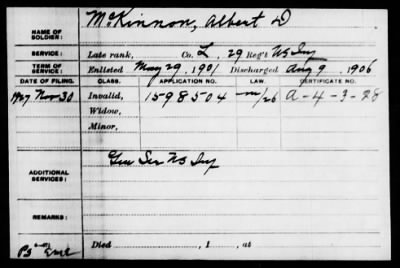 McKinnon, Albert D
NAME OF SOLDIER:
SERVICE: Late rank, Co. L, 29 Reg't US Inf
TERM OF SERVICE: Enlisted May 29, 1901 Discharged Aug 9, 1906
DATE OF FILING. CLASS. APPLICATION NO. LAW. CERTIFICATE NO.
1927 Nov 30 Invalid, 1598504 A-4-3-28
Widow,
Minor,
ADDITIONAL SERVICES: Gen Ser US Inf
REMARKS:
Died , 1 , at